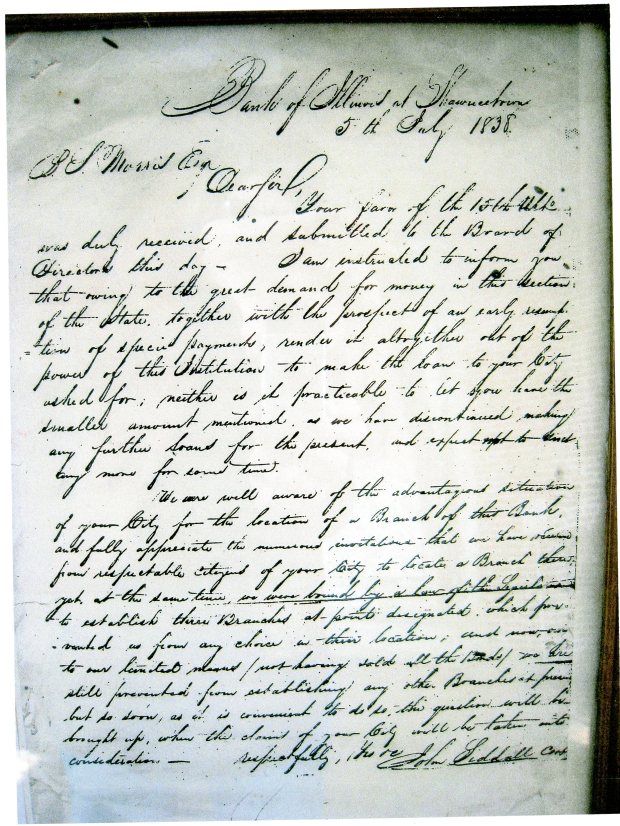 Bank of Illinois at Shawneetown
5th July 1838
B. S. Morris Esqr
Dear Sir,
Your favor of the 15th Ulto
was duly received, and submitted to the Board of
Directors this day — I am instructed to inform you,
that owing to the great demand for money in this section
of the State, together with the prospect of an early resump-
=tion of specie payments, render it altogether out of the
power of this Institution to make the loan to your City
asked for; neither is it practicable to let you have the
smaller amount mentioned, as we have discontinued making
any further loans for the present, and expect not to
any more for some time.
We are well aware of the advantageous situation
of your City for the location of a Branch of this Bank,
and fully appreciate the numerous invitations that we have
from respectable citizens of your City to locate a Branch there,
yet, at the same time, we were bound by a law of the Legislature
to establish three Branches at points designated, which pre-
-vented us from any choice in their location; and now,
to our limited means (not having sold all the Bonds) we are
still prevented from establishing any other Branches at
but so soon, as it is convenient to do so, the question will be
brought up, when the claims of your City will be taken into
consideration — respectfully, Yrs &c John Siddall Cash